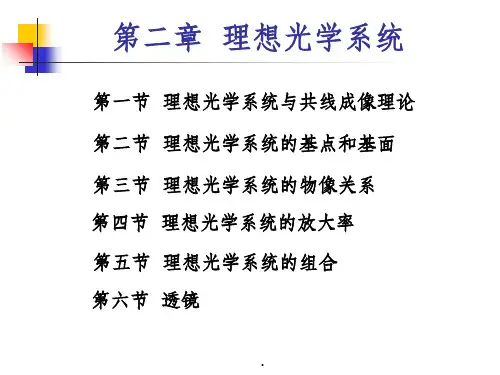 第二章 理想光学系统
第一节 理想光学系统与共线成像理论
第二节 理想光学系统的基点和基面
第三节 理想光学系统的物像关系
第四节 理想光学系统的放大率
第五节 理想光学系统的组合
第六节 透镜
.